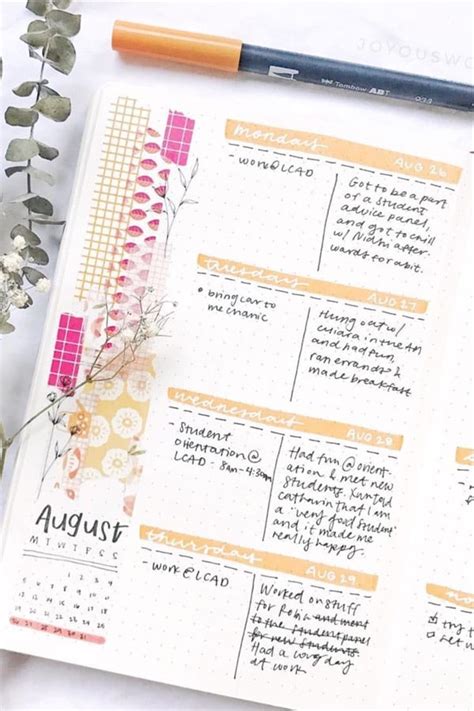 JOYOUSWO
Tombow ABT
monday
AUG 26
- work@LCAD
Got to be a part
of a student
advice panel,
and got to chill
w/ Nidhi after-
wards for a bit.
tuesday
AUG 27
• bring car to
mechanic
Hung out w/
chiara in the AM
and had fun,
ran errands &
made breakfast
wednesday
AUG 28
- Student
orientation@
LCAD - 8am-4:30pm
Had fun @ orient-
ation & met new
students.
catharin that I am
a "very good student"
and it made me
really happy.
thursday
AUG 29
- work@LCAD
Worked on stuff
for Robin and went
to the student panel
for new students
Had a long day
at work
August
M T W T F S S
1 2 3 4
5 6 7 8 9 10 11
12 13 14 15 16 17 18
19 20 21 22 23 24 25
26 27 28 29 30 31
no
try t